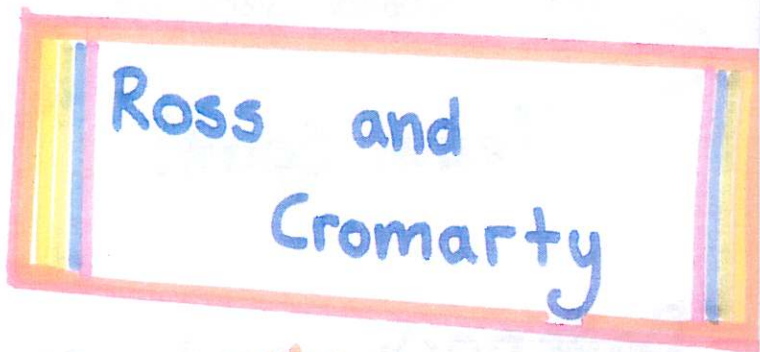 Ross and
Cromarty